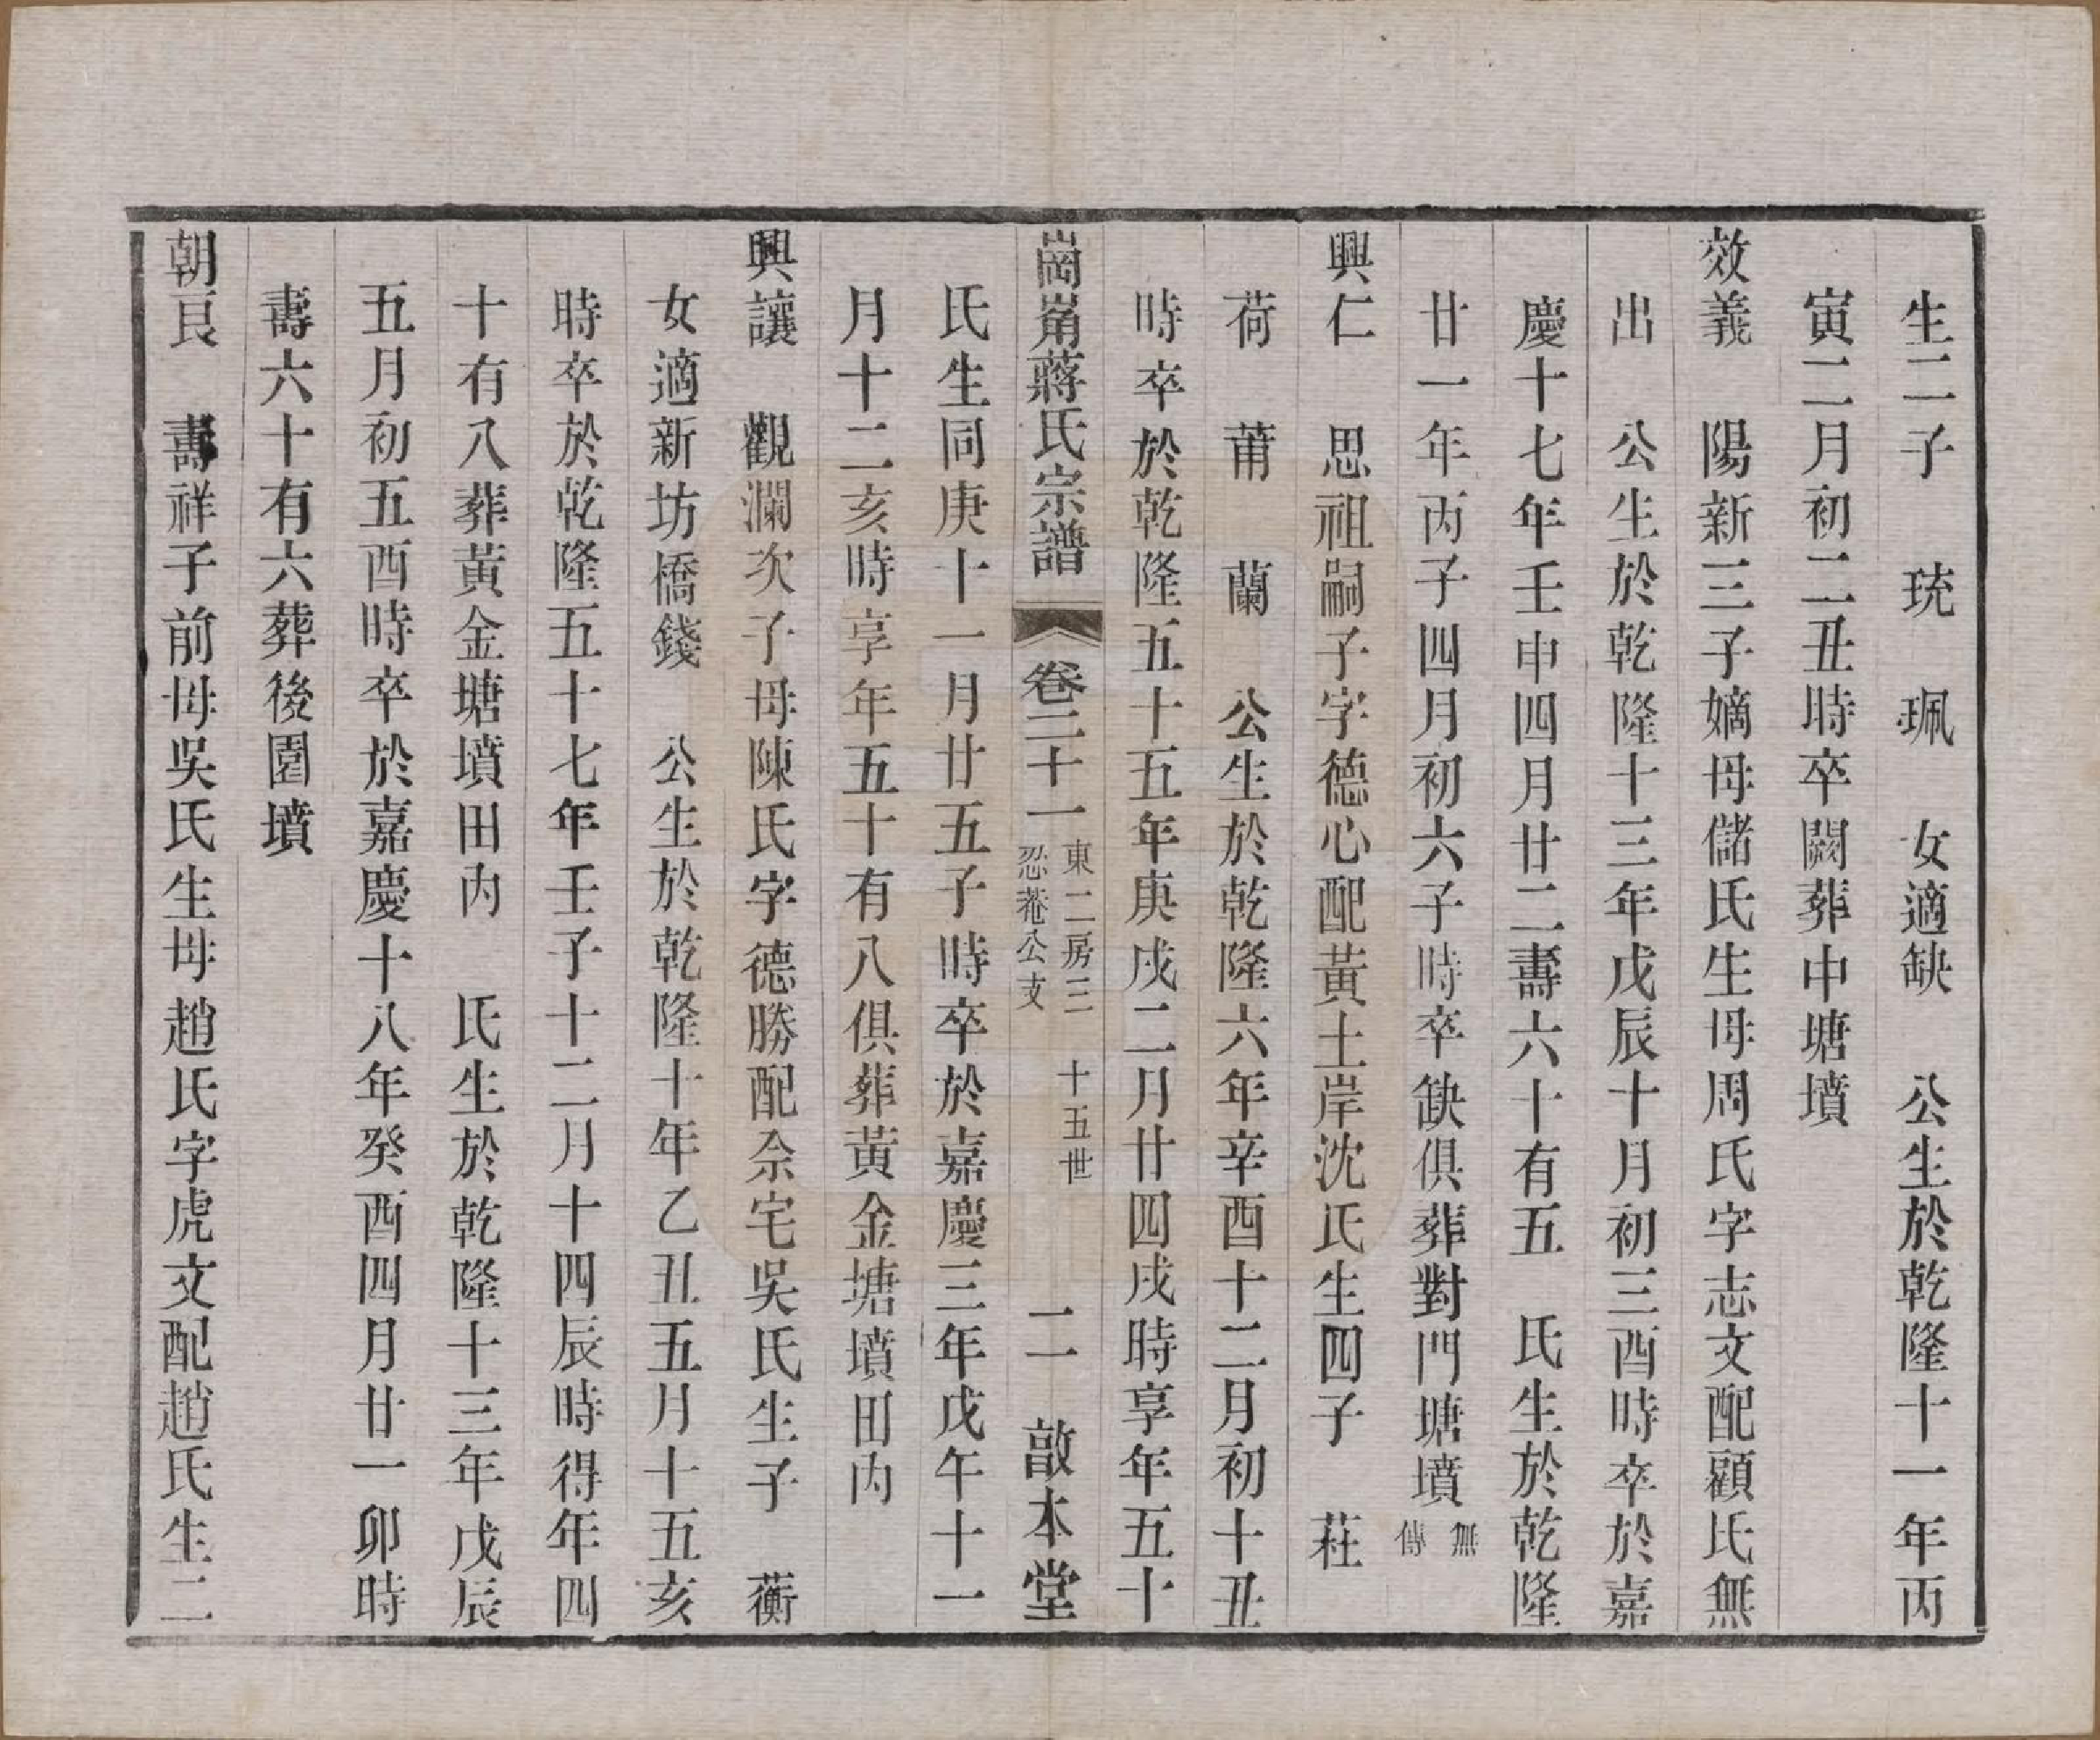 生二子　琉　珮　女適缺　公生於乾隆十一年丙
寅二月初二丑時卒闕葬中塘墳
效義　陽新三子嫡母儲氏生母周氏字志文配顧氏無
出　公生於乾隆十三年戊辰十月初三酉時卒於嘉
慶十七年壬申四月廿二壽六十有五　氏生於乾隆
廿一年丙子四月初六子時卒缺俱葬對門塘墳無傳
興仁　思祖嗣子字德心配黃土岸沈氏生四子　荘
荷　莆　蘭　公生於乾隆六年辛酉十二月初十丑
時卒於乾隆五十五年庚戌二月廿四戌時享年五十
崗角蔣氏宗譜　卷二十一　東二房三忍菴公支　十五世　二　敨本堂
氏生同庚十一月廿五子時卒於嘉慶三年戊午十一
月十二亥時享年五十有八俱葬黃金塘墳田內
興讓　觀瀾次子母陳氏字德勝配佘宅吳氏生子　蘅
女適新坊橋錢　公生於乾隆十年乙丑五月十五亥
時卒於乾隆五十七年壬子十二月十四辰時得年四
十有八葬黃金塘墳田內　氏生於乾隆十三年戊辰
五月初五酉時卒於嘉慶十八年癸酉四月廿一卯時
壽六十有六葬後園墳
朝良　壽祥子前母吳氏生母趙氏字虎文配趙氏生二